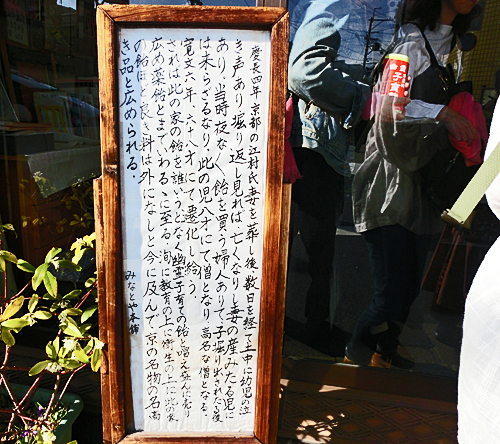 慶長四年京都の江村氏妻を葬し後数日を経て土中に幼児の泣
き声あり掘り返し見れば亡くなりし妻の産みたる児に
てあり、当時夜な〱飴を買う婦人ありて子掘り出されたる後
は来らざるなり此の児八才にて僧となり高名な僧となる。
寛文六年、六十八才にて遷化し給う
されば此の家の飴を誰いうとなく幽霊子育ての飴と唱え盛んに売り
広め薬飴とまでいわるゝに至る、洵に教育の上に衛生の上に此の家
の飴ほど良き料は外になしと今に及んで京の名物の名高
き品と広められる。
みなとや本舗
子育